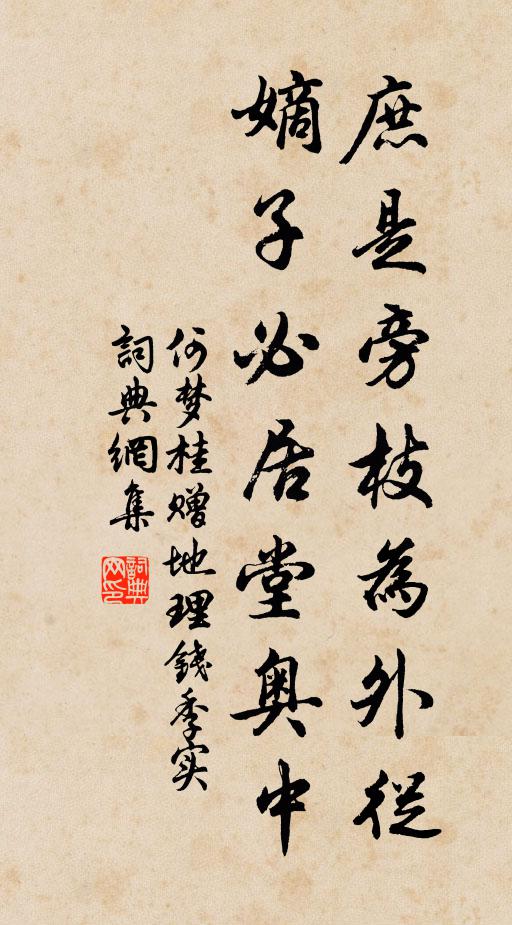 庶是旁枝為外從
嫡子必居堂奥中
何梦桂赠地理錢季实
詞典網集
詞典网印